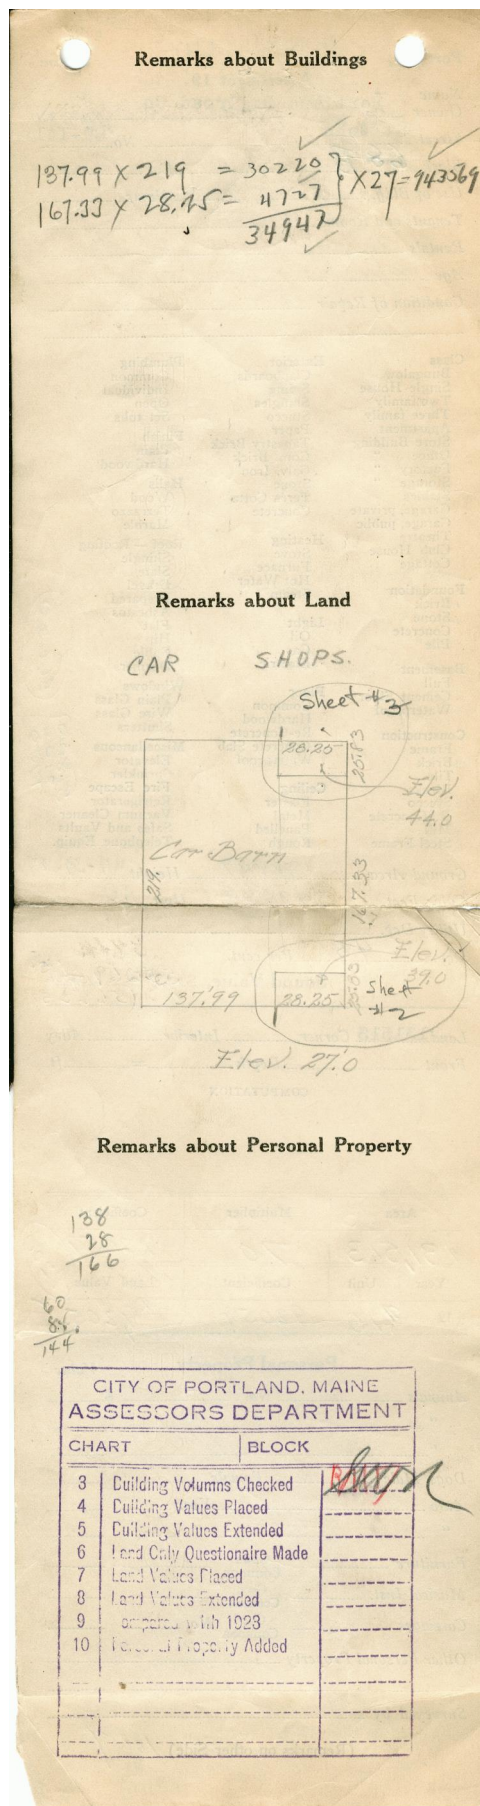 Remarks about Buildings
137.99 X 219 = 30220
167.33 X 28.25 = 4727
34947
X 27 = 943569
Remarks about Land
CAR SHOPS.
Sheet #3
28.25
25.83
Elev.
44.0
Car Barn
219.
167.33
Elev.
39.0
Sheet
#2
25.83
137.99
28.25
Elev. 27.0
Remarks about Personal Property
138
28
166
60
84
144
CITY OF PORTLAND, MAINE
ASSESSORS DEPARTMENT
CHART BLOCK
3 Building Volumns Checked
4 Building Values Placed
5 Building Values Extended
6 Land Only Questionaire Made
7 Land Values Placed
8 Land Values Extended
9 ompared with 1923
10 Personal Property Added